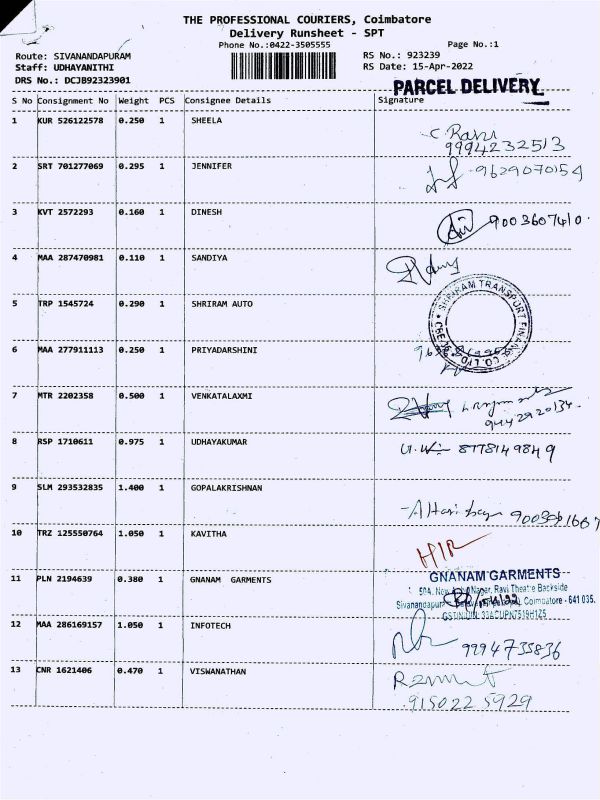 THE PROFESSIONAL COURIERS, Coimbatore
Delivery Runsheet - SPT
Phone No.:0422-3505555
Page No.:1
Route: SIVANANDAPURAM
Staff: UDHAYANITHI
DRS No.: DCJB92323901
RS No.: 923239
RS Date: 15-Apr-2022
PARCEL DELIVERY
S No Consignment No Weight PCS Consignee Details Signature
1 KUR 526122578 0.250 1 SHEELA
9994232513
2 SRT 701277069 0.295 1 JENNIFER
9629070154
3 KVT 2572293 0.160 1 DINESH
9003607410
4 MAA 287470981 0.110 1 SANDIYA
5 TRP 1545724 0.290 1 SHRIRAM AUTO
SHRIRAM TRANSPORT FINANCE CO.LTD
6 MAA 277911113 0.250 1 PRIYADARSHINI
7 MTR 2202358 0.500 1 VENKATALAXMI
9442920134
8 RSP 1710611 0.975 1 UDHAYAKUMAR
8778149849
9 SLM 293532835 1.400 1 GOPALAKRISHNAN
10 TRZ 125550764 1.050 1 KAVITHA
11 PLN 2194639 0.380 1 GNANAM GARMENTS
GNANAM GARMENTS
Nagar, Ravi Theatre Backside
Coimbatore - 641 035.
12 MAA 286169157 1.050 1 INFOTECH
9994735836
13 CNR 1621406 0.470 1 VISWANATHAN
9150225929